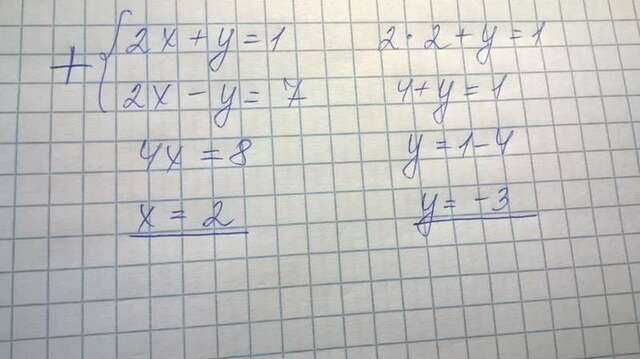 + { 2x + y = 1
2x - y = 7
4x = 8
x = 2
2 · 2 + y = 1
4 + y = 1
y = 1 - 4
y = -3